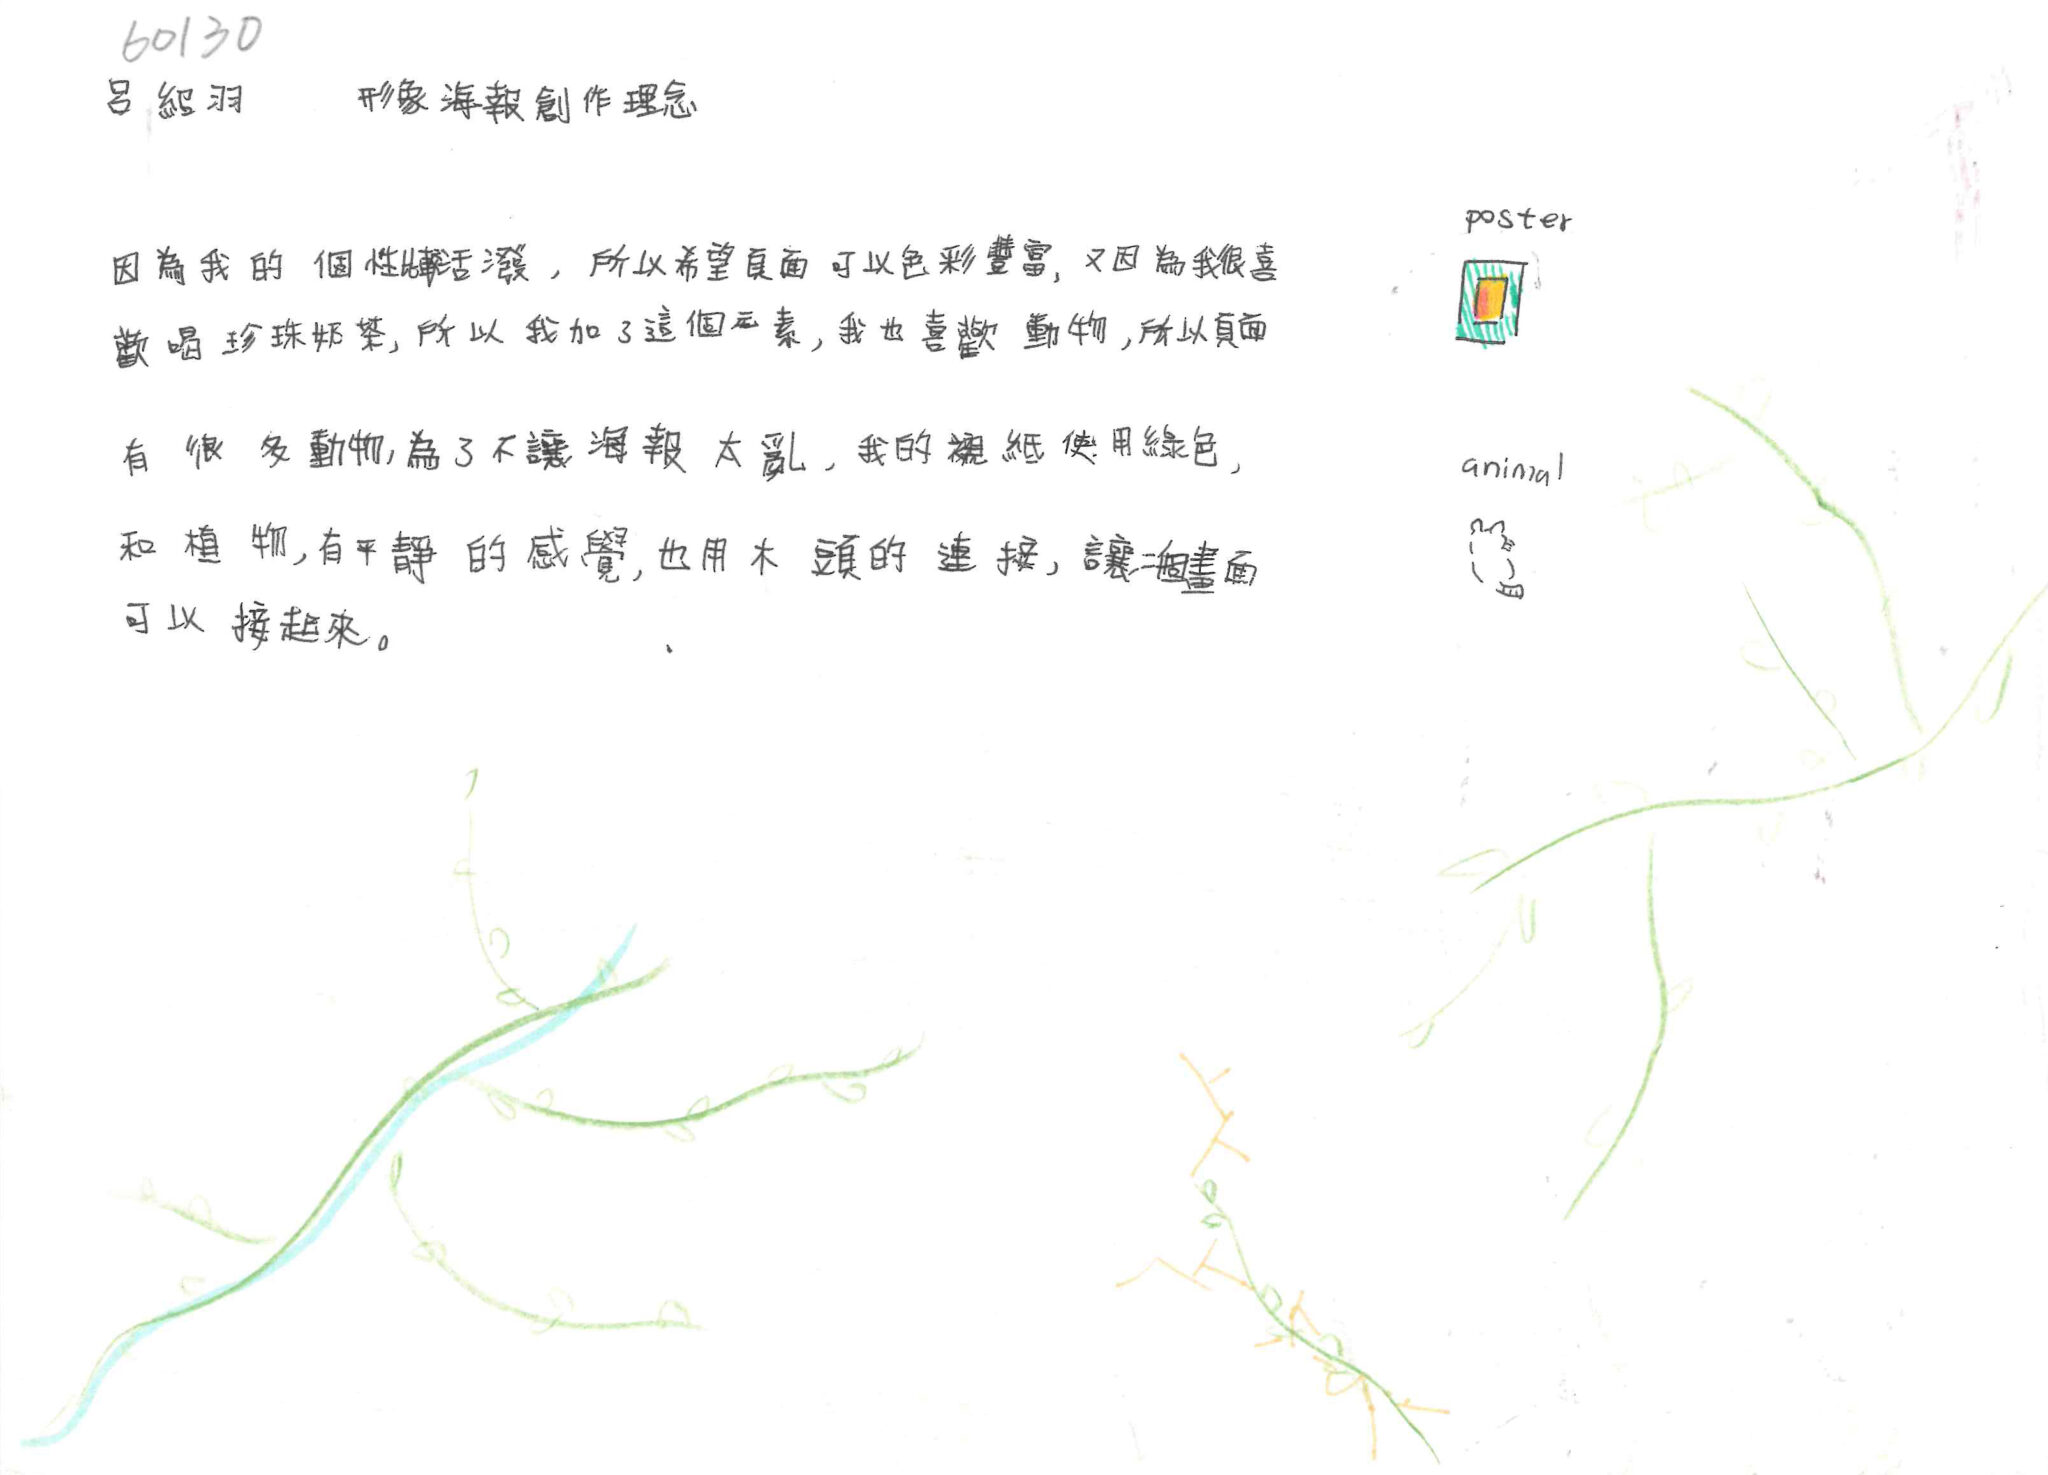 60130
呂紹羽 形象海報創作理念
因為我的個性比較活潑，所以希望頁面可以色彩豐富，又因為我很喜
歡喝珍珠奶茶，所以我加了這個元素，我也喜歡動物，所以頁面
有很多動物，為了不讓海報太亂，我的襯紙使用綠色，
和植物，有平靜的感覺，也用木頭的連接，讓二個畫面
可以接起來。
poster
animal